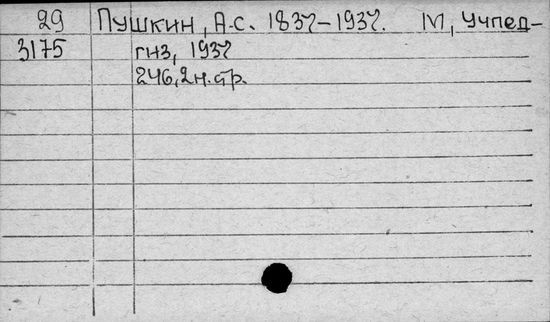 29 Пушкин, А.С. 1837-1937. М, Учпед-
3175 гиз, 1937
246, 2н.стр.